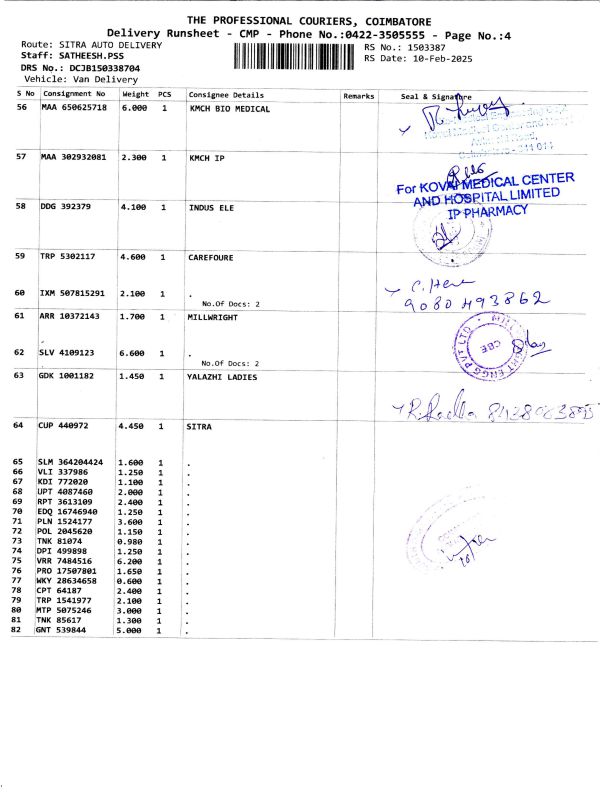 THE PROFESSIONAL COURIERS, COIMBATORE
Delivery Runsheet - CMP - Phone No.:0422-3505555 - Page No.:4
Route: SITRA AUTO DELIVERY
RS No.: 1503387
Staff: SATHEESH.PSS
RS Date: 10-Feb-2025
DRS No.: DCJB150338704
Vehicle: Van Delivery
S No Consignment No Weight PCS Consignee Details Remarks Seal & Signature
56 MAA 650625718 6.000 1 KMCH BIO MEDICAL
57 MAA 302932081 2.300 1 KMCH IP
For KOVAI MEDICAL CENTER
AND HOSPITAL LIMITED
IP PHARMACY
58 DDG 392379 4.100 1 INDUS ELE
59 TRP 5302117 4.600 1 CAREFOURE
60 IXM 507815291 2.100 1 .
No.Of Docs: 2
9080493862
61 ARR 10372143 1.700 1 MILLWRIGHT
62 SLV 4109123 6.600 1 .
No.Of Docs: 2
63 GDK 1001182 1.450 1 YALAZHI LADIES
64 CUP 440972 4.450 1 SITRA
65 SLM 364204424 1.600 1 .
66 VLI 337986 1.250 1 .
67 KDI 772020 1.100 1 .
68 UPT 4087460 2.000 1 .
69 RPT 3613109 2.400 1 .
70 EDQ 16746940 1.250 1 .
71 PLN 1524177 3.600 1 .
72 POL 2045620 1.150 1 .
73 TNK 81074 0.980 1 .
74 DPI 499898 1.250 1 .
75 VRR 7484516 6.200 1 .
76 PRO 17507801 1.650 1 .
77 WKY 28634658 0.600 1 .
78 CPT 64187 2.400 1 .
79 TRP 1541977 2.100 1 .
80 MTP 5075246 3.000 1 .
81 TNK 85617 1.300 1 .
82 GNT 539844 5.000 1 .